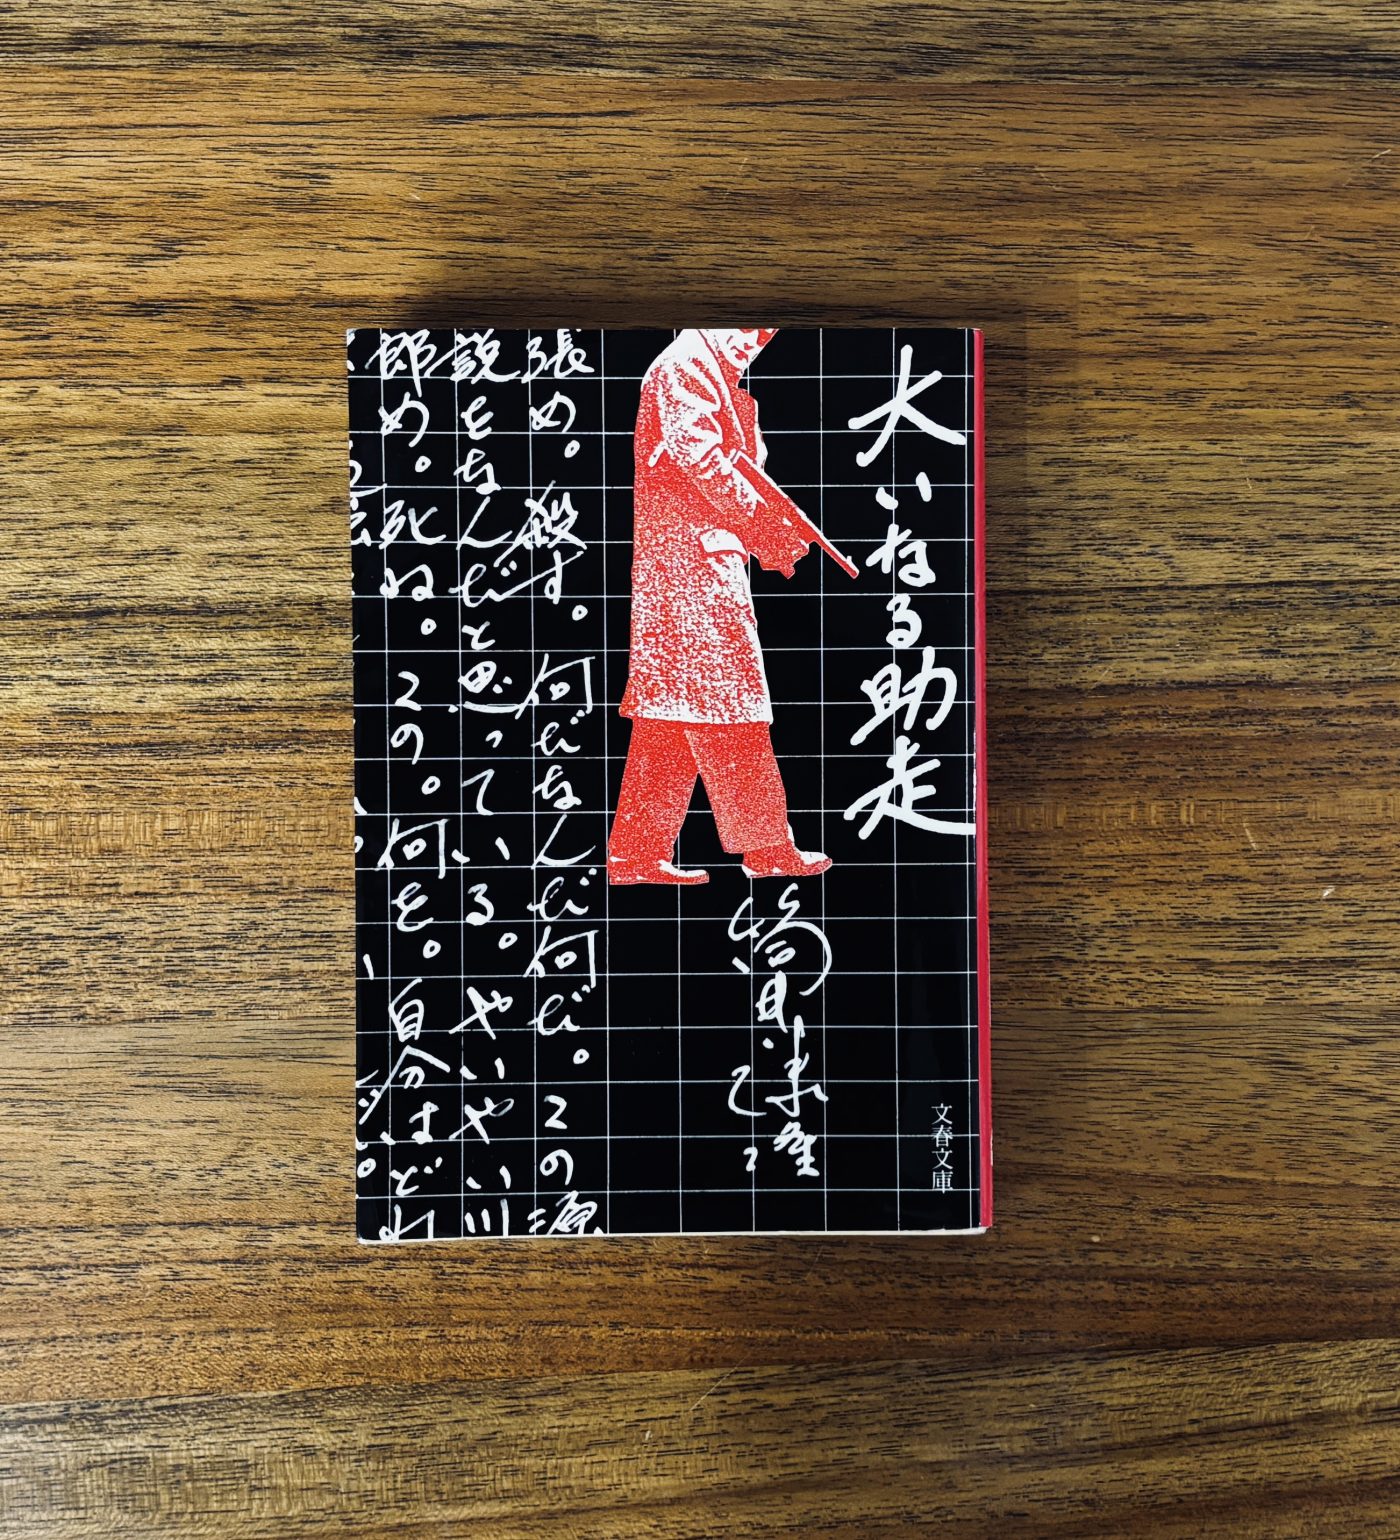 大いなる助走
筒井康隆
文春文庫
張め。殺す。何だなんだ何だ。この源
説をなんだと思っている。やいやい川
郎め。死ね。この。何を。自分はどれ